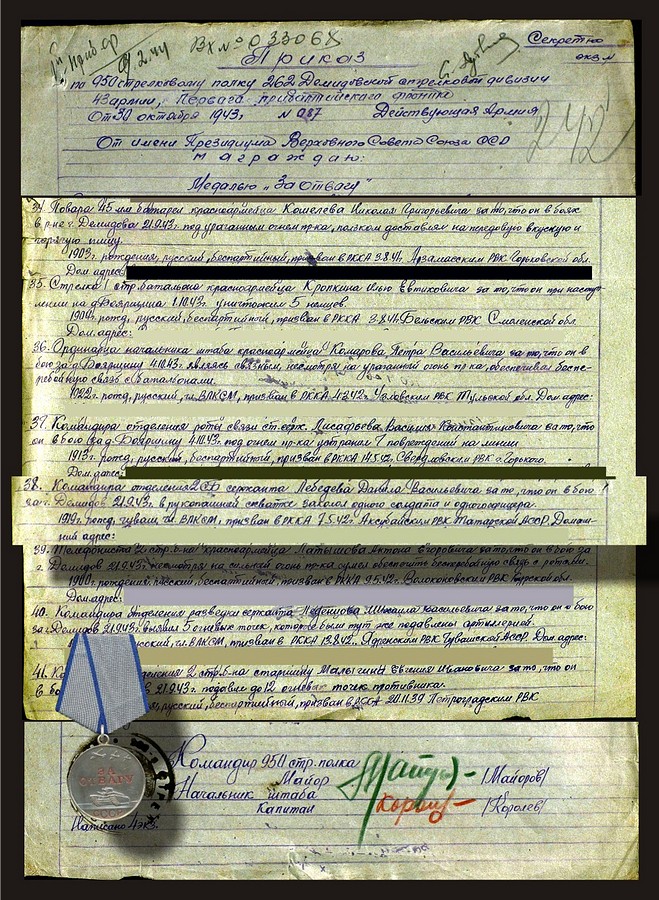 Вх № 03306х
Секретно
Приказ
экз. №
по 950 стрелковому полку 262 Демидовской стрелковой дивизии
43 армии, Первого прибалтийского фронта
От 30 октября 1943г. № 087 Действующая Армия
242
От имени Президиума Верховного Совета Союза ССР
награждаю:
Медалью „За Отвагу"
34. Повара 45 мм батареи красноармейца Кошелева Николая Григорьевича за то, что он в боях
в р-не г. Демидова 21.9.43г. под ураганным огнем пр-ка, ползком доставлял на передовую вкусную и
горячую пищу.
1903г. рождения, русский, беспартийный, призван в РККА 3.8.41г. Арзамасским РВК Горьковской обл.
Дом. адрес:
35. Стрелка 1 стр. батальона красноармейца Кропкина Илью Евтиховича за то, что он при насту-
плении на д. Боярщина 1.10.43г. уничтожил 5 немцев.
1904г. рожд, русский, беспартийный, призван в РККА 3.8.41г. Бельским РВК Смоленской обл.
Дом. адрес:
36. Ординарца начальника штаба красноармейца Комарова Петра Васильевича за то, что он в
бою за д. Боярщину 4.10.43г. являясь связным, несмотря на ураганный огонь пр-ка, обеспечивал беспе-
ребойную связь с батальонами.
1922г. рожд, русский, чл. ВЛКСМ, призван в РККА 4.2.42г. РВК Тульской обл. Дом. адрес:
37. Командира отделения роты связи ст. серж. Лисафьева Василия Константиновича за то, что
он в бою за д. Боярщину 4.10.43г. под огнем пр-ка устранил 7 повреждений на линии
1913г. рожд, русский, беспартийный, призван в РККА 14.5.42г. Свердловским РВК г. Горького.
Дом. адрес:
38. Командира отделения 2 сержанта Лебедева Данила Васильевича за то, что он в бою
за г. Демидов 21.9.43г. в рукопашной схватке заколол одного солдата и одного офицера.
1919г. рожд. чуваш, чл. ВЛКСМ, призван в РККА 7.5.42г. Аксубайским РВК Татарской АССР. Домаш-
ний адрес:
39. Телефониста 2 стр. б-на красноармейца Латышова Антона Егоровича за то, что он в бою за
г. Демидов 21.9.43г. несмотря на сильный огонь пр-ка сумел обеспечить бесперебойную связь с ротами.
1900г. рождения, русский, беспартийный, призван в РККА 9.5.42г. Волоконовским РВК Курской обл.
Дом. адрес:
40. Командира отделения разведки сержанта Леденцова Михаила Васильевича за то, что он в бою
за г. Демидов 21.9.43г. выявил 5 огневых точек, которые были тут же подавлены артилерией.
русский, чл. ВЛКСМ, призван в РККА 13.8.42г. Ядренским РВК Чувашской АССР. Дом. адрес:
41. Ко отделения 2 стр. б-на старшину Малыгина Евгения Ивановича за то, что он
в бо 21.9.43г. подавил до 12 огневых точек противника.
русский, беспартийный, призван в РККА 20.11.39 Петроградским РВК
Командир 950 стр. полка
Майор /Майоров/
Начальник штаба
капитан /Королев/
Написано 4 экз.
ЗА
ОТВАГУ
СССР